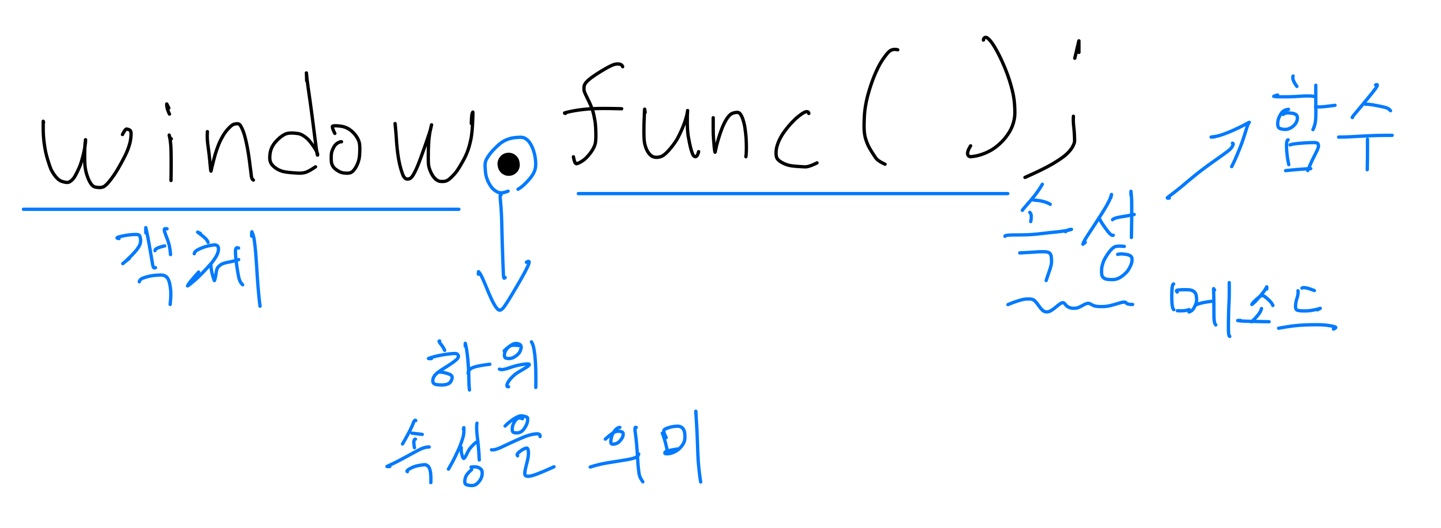 window.func();
객체
하위
속성을 의미
속성
함수
메소드